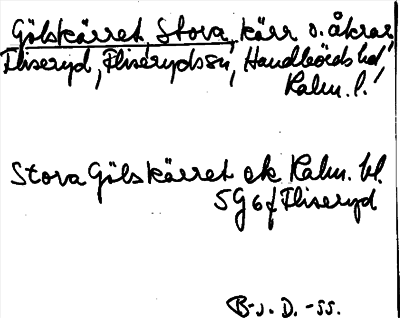 Gölskärret, Stora, kärr o. åkrar,
Fliseryd, Fliseryds sn, Handbörds hd,
Kalm. l.
Stora Gölskärret ek Kalm. bl.
5G 6f Fliseryd
B-s. D. -55.